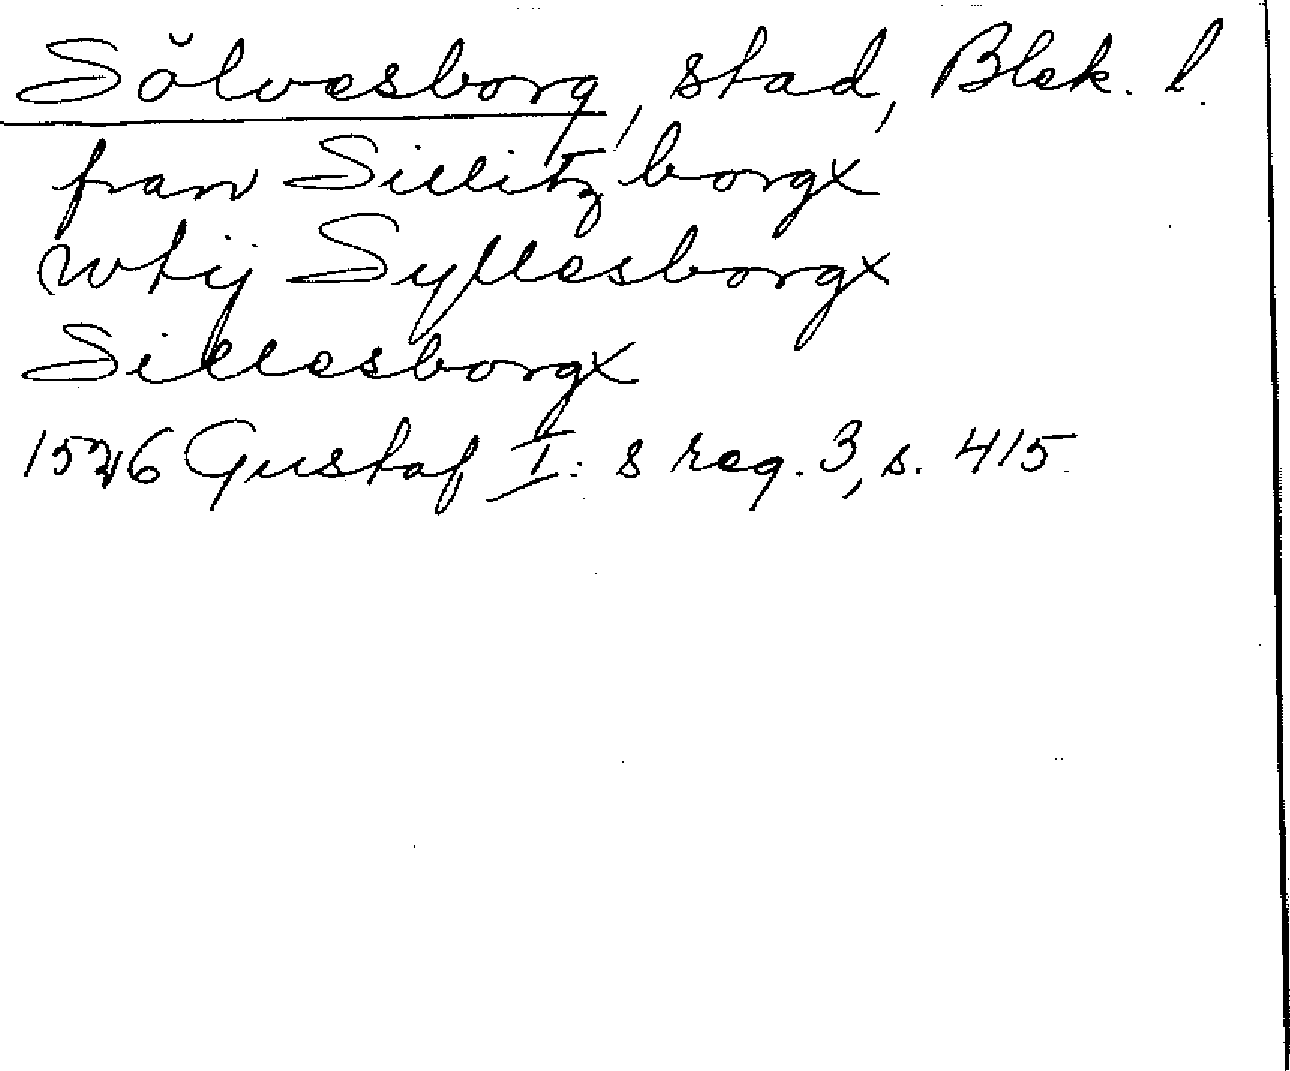 Sölvesborg, stad, Blek. l.
fran Sillitzborgx
wtij Syllesborgx
Sillesborgx
1526 Gustaf I: s reg. 3, s. 415